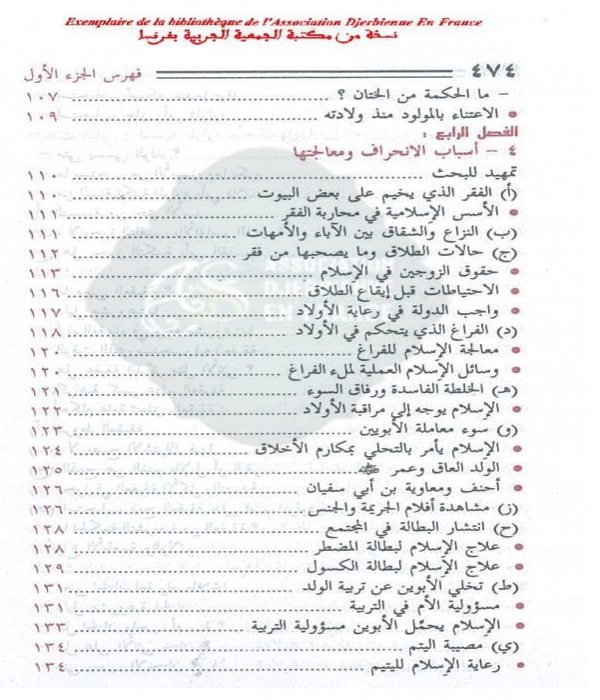 Exemplaire de la bibliothèque de l'Association Djerbienne En France
نسخة من مكتبة الجمعية الجربية بفرنسا
٤٧٤ فهرس الجزء الأول
- ما الحكمة من الختان ؟ ١٠٧
• الاعتناء بالمولود منذ ولادته ١٠٩
الفصل الرابع :
٤ - أسباب الانحراف ومعالجتها
تمهيد للبحث ١١٠
(أ) الفقر الذي يخيم على بعض البيوت ١١٠
• الأسس الإسلامية في محاربة الفقر ١١١
(ب) النزاع والشقاق بين الآباء والأمهات ١١١
(ج) حالات الطلاق وما يصحبها من فقر ١١٢
• حقوق الزوجين في الإسلام ١١٣
• الاحتياطات قبل إيقاع الطلاق ١١٦
• واجب الدولة في رعاية الأولاد ١١٧
(د) الفراغ الذي يتحكم في الأولاد ١١٨
• معالجة الإسلام للفراغ ١٢٠
• وسائل الإسلام العملية لملء الفراغ ١٢٠
(هـ) الخلطة الفاسدة ورفاق السوء ١٢١
• الإسلام يوجه إلى مراقبة الأولاد ١٢٢
(و) سوء معاملة الأبوين ١٢٣
• الإسلام يأمر بالتحلي بمكارم الأخلاق ١٢٤
• الولد العاق وعمر ١٢٥
• أحنف ومعاوية بن أبي سفيان ١٢٦
(ز) مشاهدة أفلام الجريمة والجنس ١٢٦
(ح) انتشار البطالة في المجتمع ١٢٨
• علاج الإسلام لبطالة المضطر ١٢٨
• علاج الإسلام لبطالة الكسول ١٢٩
(ط) تخلي الأبوين عن تربية الولد ١٣١
• مسؤولية الأم في التربية ١٣١
• الإسلام يحمّل الأبوين مسؤولية التربية ١٣٣
(ي) مصيبة اليتم ١٣٤
• رعاية الإسلام لليتيم ١٣٤
ASSOCIATION
DJERBIENNE
EN FRANCE